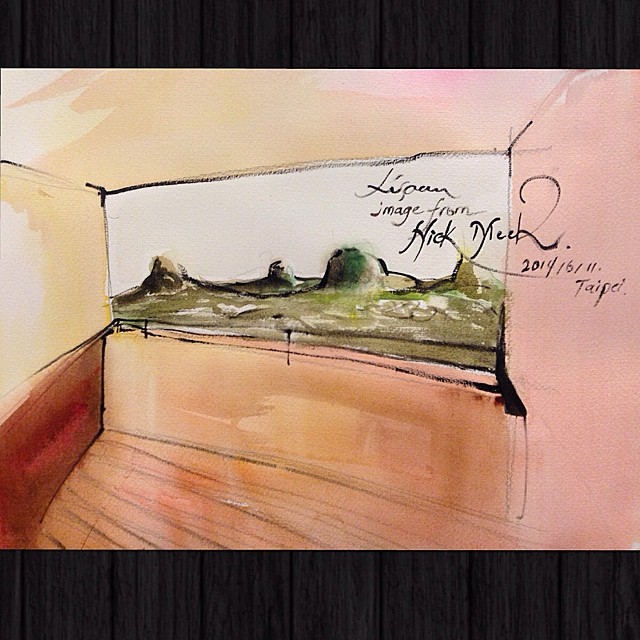 image from
Nick Meek.
2014/6/11.
Taipei.